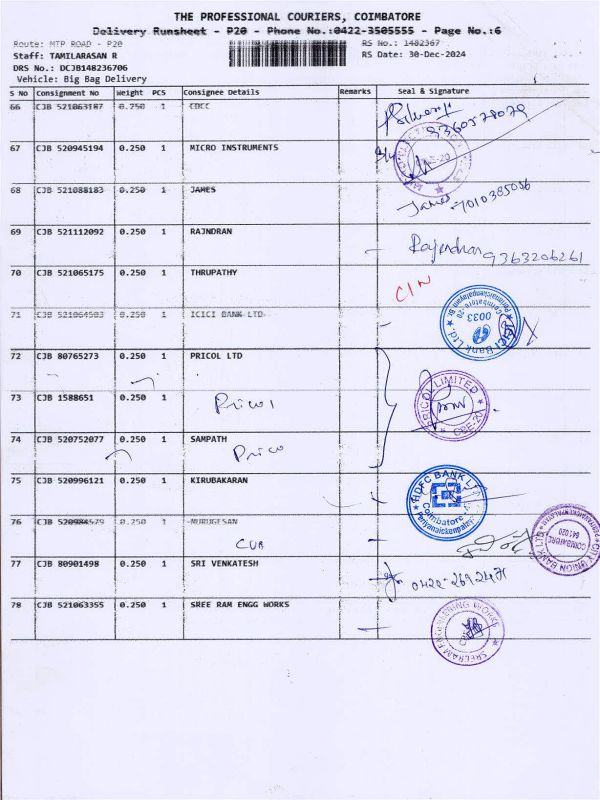 THE PROFESSIONAL COURIERS, COIMBATORE
Delivery Runsheet - P20 - Phone No.:0422-3505555 - Page No.:6
Route: MTP ROAD - P20 RS No.: 1482367
Staff: TAMILARASAN R RS Date: 30-Dec-2024
DRS No.: DCJB148236706
Vehicle: Big Bag Delivery
S No Consignment No Weight PCS Consignee Details Remarks Seal & Signature
66 CJB 521063187 0.250 1 CDCC
9360578079
67 CJB 520945194 0.250 1 MICRO INSTRUMENTS
68 CJB 521088183 0.250 1 JAMES James 7010385056
69 CJB 521112092 0.250 1 RAJNDRAN Rajendran 9363206261
70 CJB 521065175 0.250 1 THRUPATHY CIN
71 CJB 521064503 0.250 1 ICICI BANK LTD ICICI Bank Ltd 0033 Coimbatore-20
72 CJB 80765273 0.250 1 PRICOL LTD
73 CJB 1588651 0.250 1 Pricol PRICOL LIMITED CBE-20
74 CJB 520752077 0.250 1 SAMPATH
Prico
75 CJB 520996121 0.250 1 KIRUBAKARAN HDFC BANK LTD Coimbatore
76 CJB 520984579 0.250 1 MURUGESAN
CUB CITY UNION BANK LTD COIMBATORE 641020
77 CJB 80901498 0.250 1 SRI VENKATESH 0422-2692471
78 CJB 521063355 0.250 1 SREE RAM ENGG WORKS SREERAM ENGINEERING WORKS